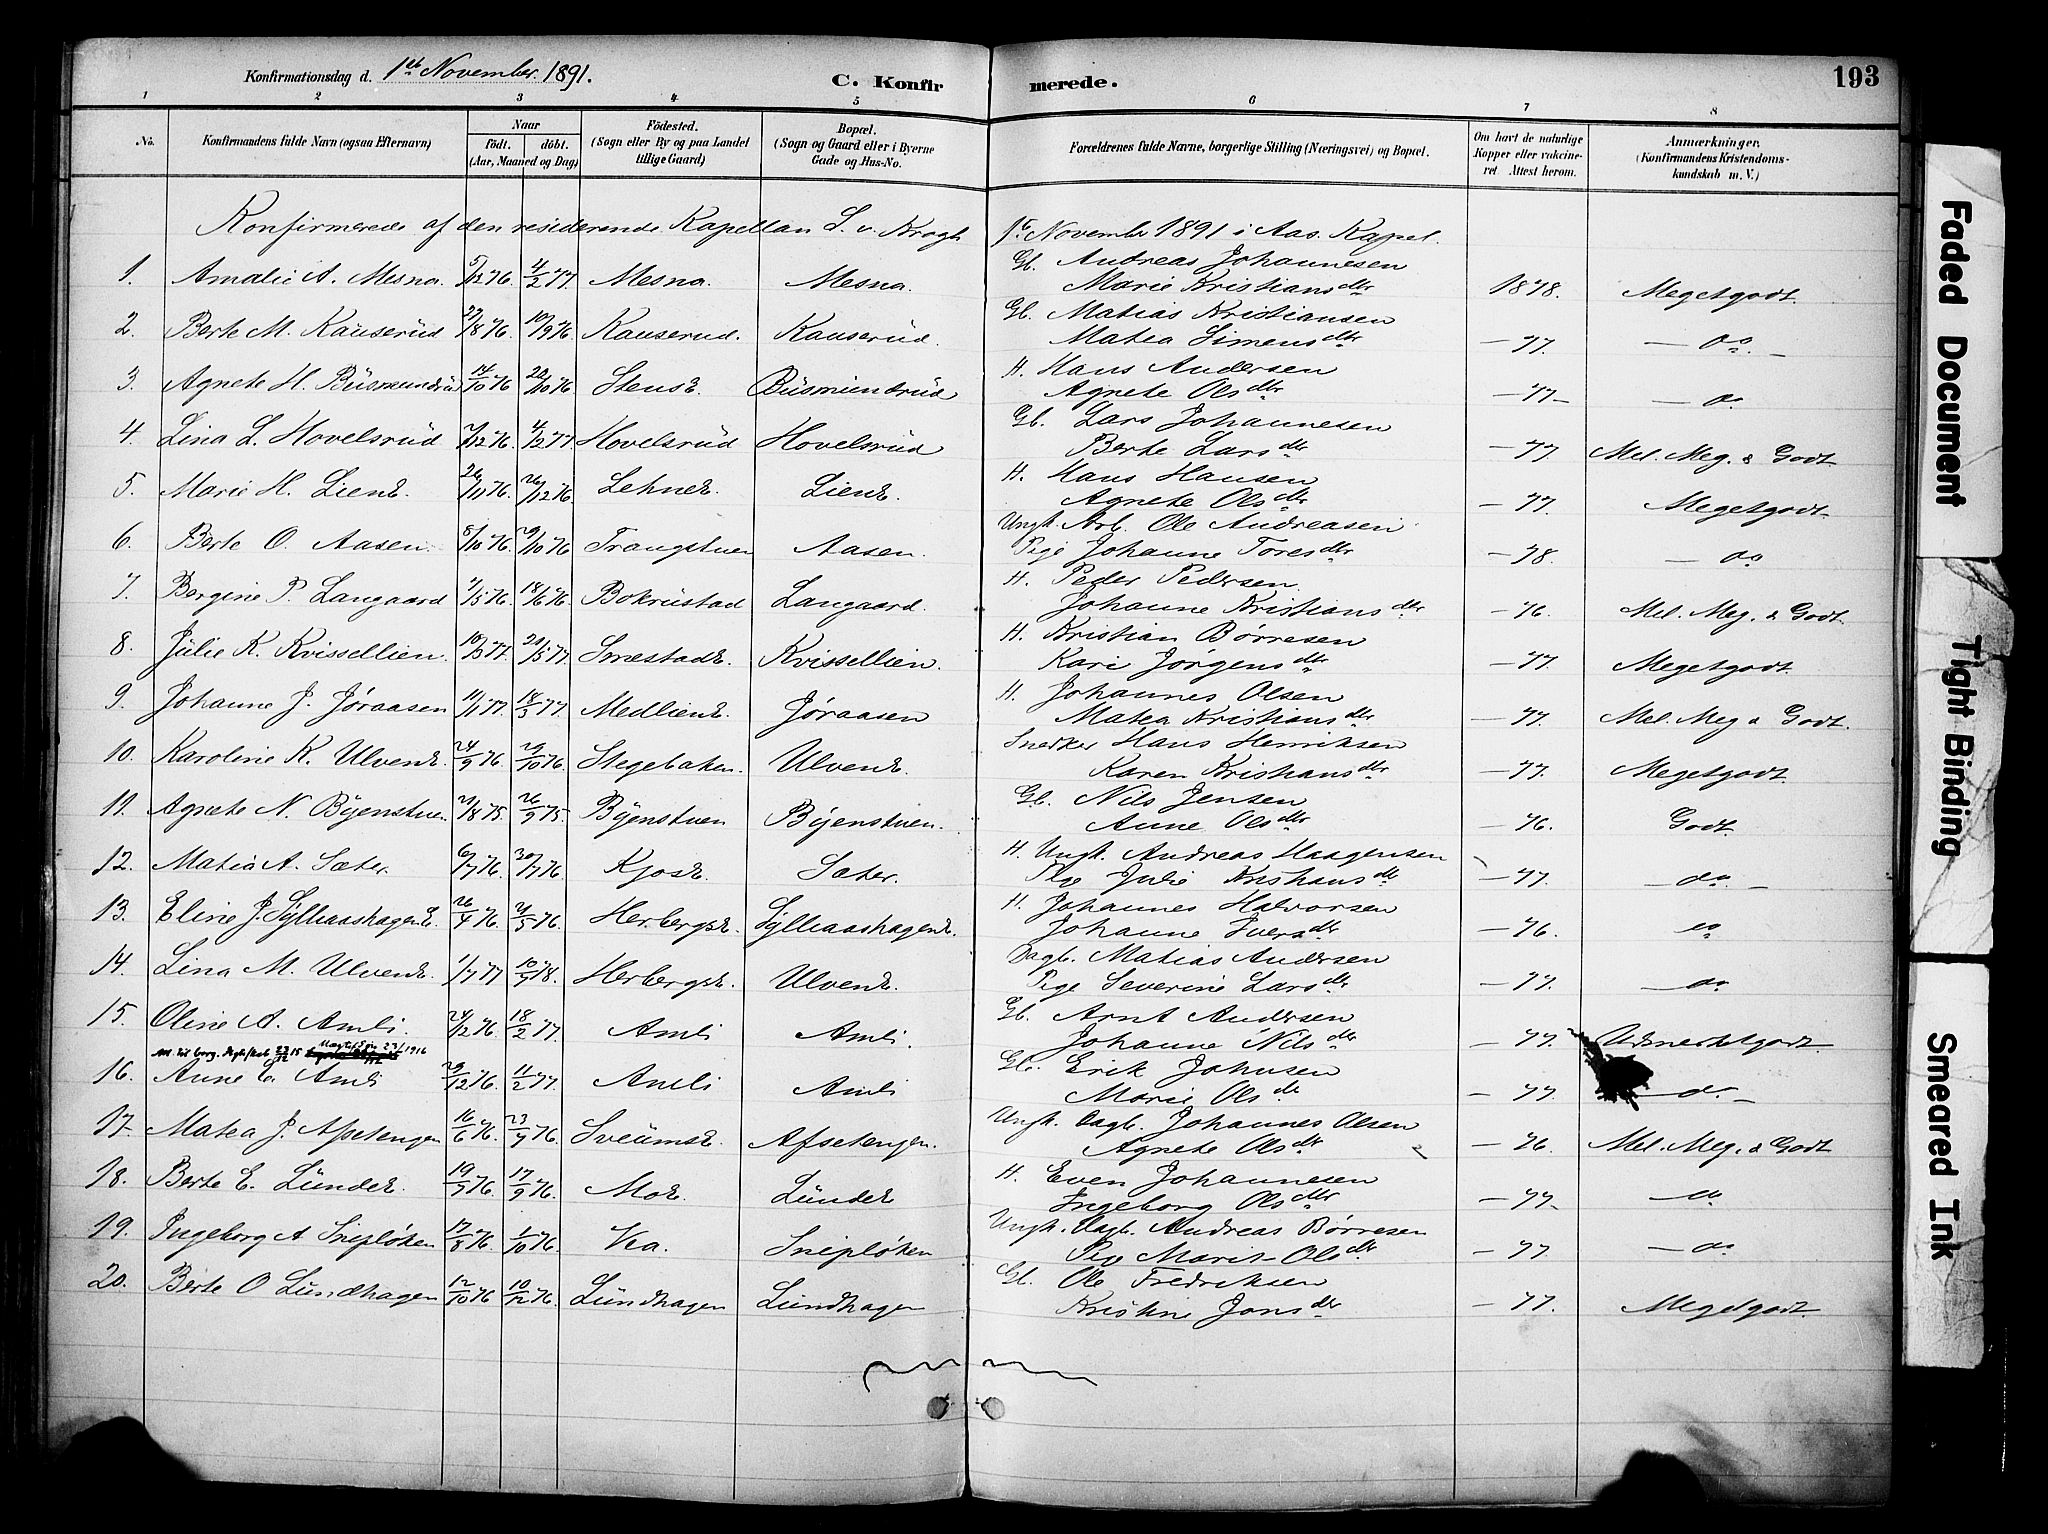 Konfirmationsdag d. 1ste November 1891. C. Konfirmerede. 193
1 2 3 4 5 6 7 8
No. Konfirmandens fulde Navn (ogsaa Efternavn) Naar født. døbt. (Aar, Maaned og Dag) Födested. (Sogn eller By og paa Landet tillige Gaard) Bopæl. (Sogn og Gaard eller i Byerne Gade og Hus-No. Forældrenes fulde Navne, borgerlige Stilling (Næringsvei) og Bopæl. Om havt de naturlige Kopper eller vakcineret. Attest herom. Anmærkninger. (Konfirmandens Kristendomskundskab m. V.)
Konfirmerede af den residerende Kapellan L. v. Krogh 1ste November 1891 i Aas Kapel.
1. Amalie A. Mesna. 5/12 76 4/2 77. Mesna. Mesna. Gb. Andreas Johannesen
Marie Kristiansdtr 1878. Megetgodt
2. Berte M. Kauserud 27/8 76 10/9 76 Kauserud. Kauserud. Gb. Matias Kristiansen
Matea Simensdtr — 77. — do. —
3. Agnete H. Busmundrud 14/10 76 20/10 76 Stensb. Busmundrud H. Hans Andersen
Agnete Olsdtr — 77 — — do
4. Lina L. Hovelsrud 7/12 76. 4/2 77. Hovelsrud Hovelsrud Gb. Lars Johannesen
Berte Larsdtr — 77 Mel. Meg. & Godt
5. Marie H. Lien E. 20/11 76. 26/12 76. Lehne E. Lien E. H. Hans Hansen
Agnete Olsdtr — 77. Megetgodt.
6. Berte O. Aasen. 8/10 76 29/10 76 Trangstuen Aasen. Ungk. Arb. Ole Andreasen
Pige Johanne Toresdtr — 78. — do
7. Bergine P. Langaard 7/5 76 18/6 76 Bokrustad Langaard. H. Peder Pedersen
Johanne Kristiansdtr — 76. Mel. Meg. & Godt.
8. Julie K. Kvissellien. 10/3 77. 21/5 77. Smestad E. Kvissellien. H. Kristian Børresen
Kari Jørgensdtr — 77. Megetgodt
9. Johanne J. Jøraasen 11/1 77 18/3 77. Medlien E. Jøraasen H. Johannes Olsen
Matea Kristiansdtr — 77. Mel. Meg & Godt.
10. Karoline K. Ulven E. 24/9 76. 29/10 76. Stegebaken. Ulven E. Snedker Hans Henriksen
Karen Kristiansdtr — 77. Megetgodt
11. Agnete N. Byenstuen 21/8 75. 26/9 75. Byenstuen Byenstuen. Gb. Nils Jensen
Anne Olsdtr — 76. Godt.
12. Matea A. Sæter. 6/7 76. 30/7 76. Kjos E. Sæter. H. Ungk. Andreas Haagensen
Pige Julie Kristiansdtr — 77. — do. —
13. Eline J. Sylliaashagen E. 26/4 76. 21/5 76. Herbergs E. Sylliaashagen E. H. Johannes Halvorsen
Johanne Iversdtr — 76. do
14. Lina M. Ulven E. 1/7 77 10/9 78. Herbergs E. Ulven E. Dagb. Matias Andersen
Pige Severine Larsdtr — 77. — do
15. Oline A. Amli. 24/12 76. 18/2 77. Amli Amli. Gb. Arnt Andersen
Johanne Nilsdtr — 77. Udmerketgodt.
16. Anne E. Amli 29/12 76. 11/2 77. Amli Amli Gb. Erik Johnsen
Marie Olsdtr — 77. — do. —
17. Matea J. Afsetengen 16/6 76. 23/7 76. Sveums E. Afsetengen. Ungk. Dagb. Johannes Olsen
Agnete Olsdtr — 76. Mel. Meg. & Godt
18. Berte E. Lunde E. 19/7 76. 17/9 76. Mo E. Lunde E H. Even Johannesen
Ingeborg Olsdtr — 77. — do
19. Ingeborg A Snipløken 17/8 76. 1/10 76. Vea. Snipløken Ungk. Dagb. Andreas Børresen
Pige Marit Olsdtr — 77. — do
20. Berte O Lundhagen 12/10 76 10/12 76. Lundhagen Lundhagen Gb. Ole Fredriksen
Kristine Jonsdtr — 77. Megetgodt.
Faded Document
Tight Binding
Smeared Ink